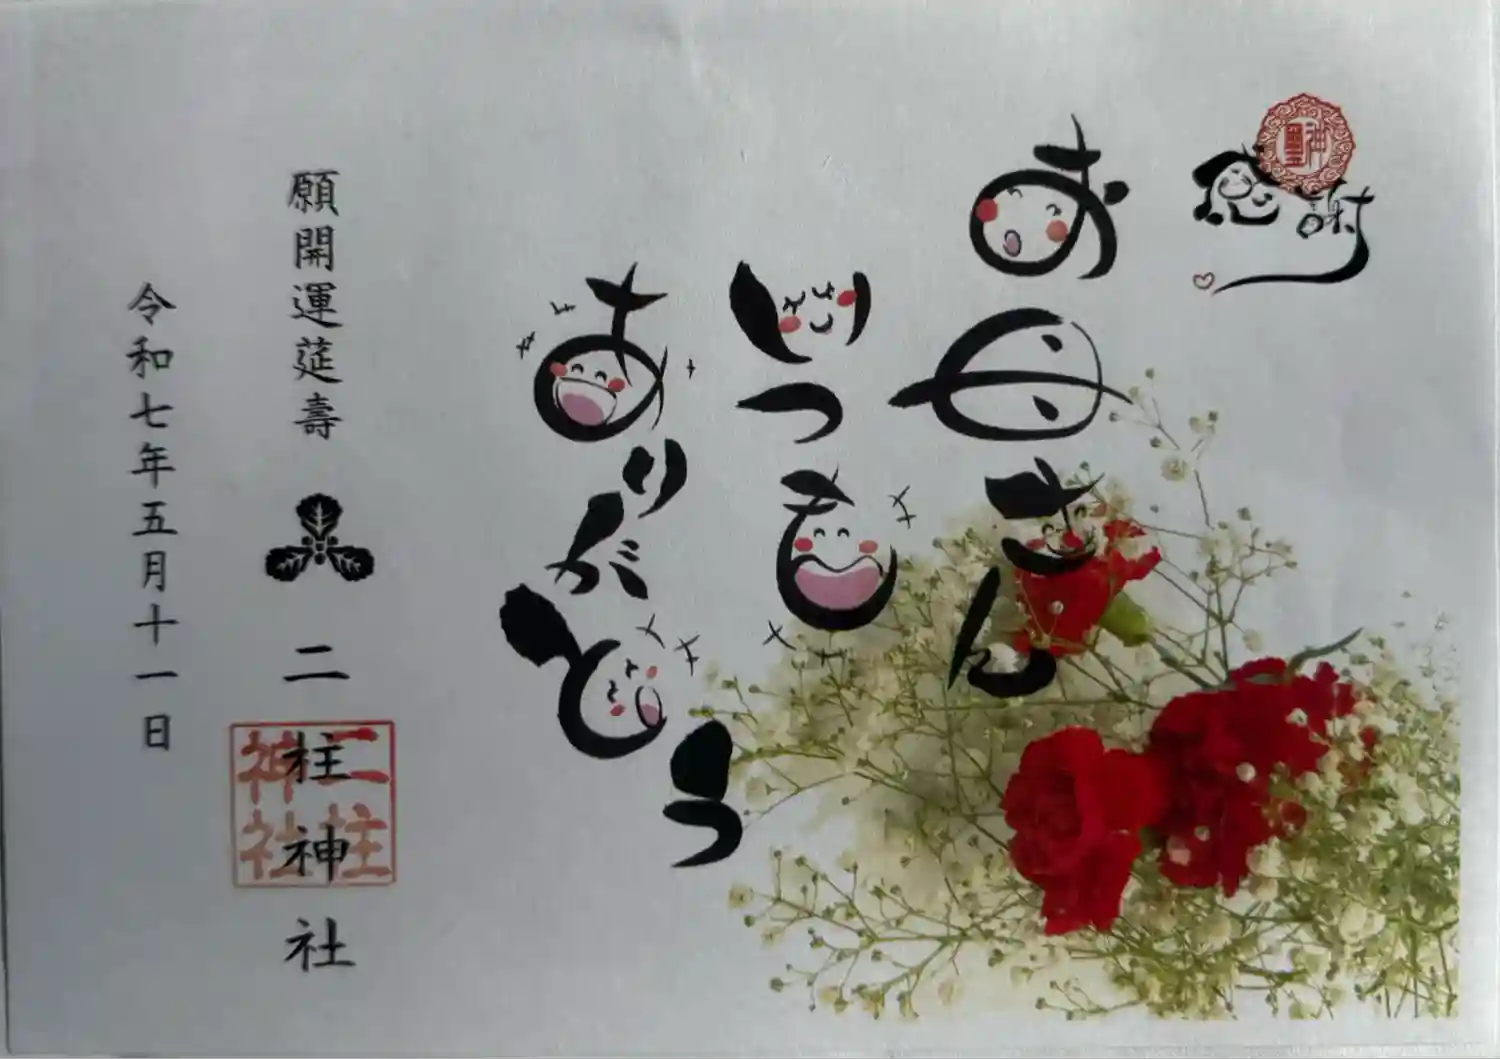 感謝
お母さん
いつも
ありがとう
願開運莚壽
二柱神社
二柱
神社
令和七年五月十一日